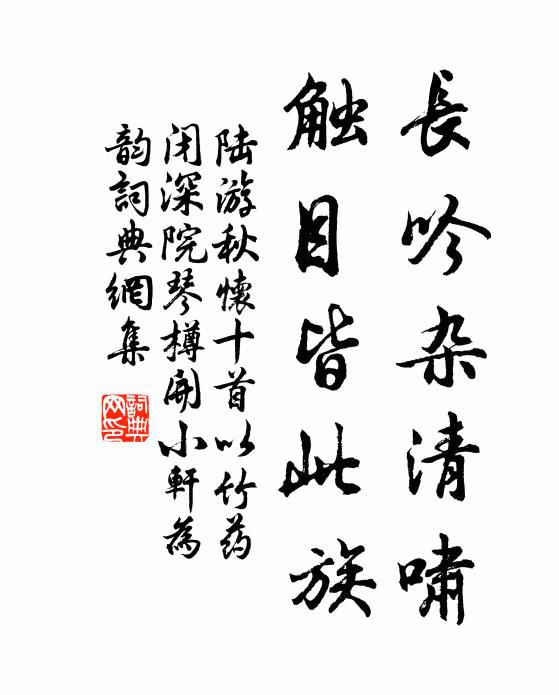 長吟杂清啸
触目皆此族
陆游秋懷十首以竹药
闭深院琴樽開小軒為
韵詞典網集
詞典网印